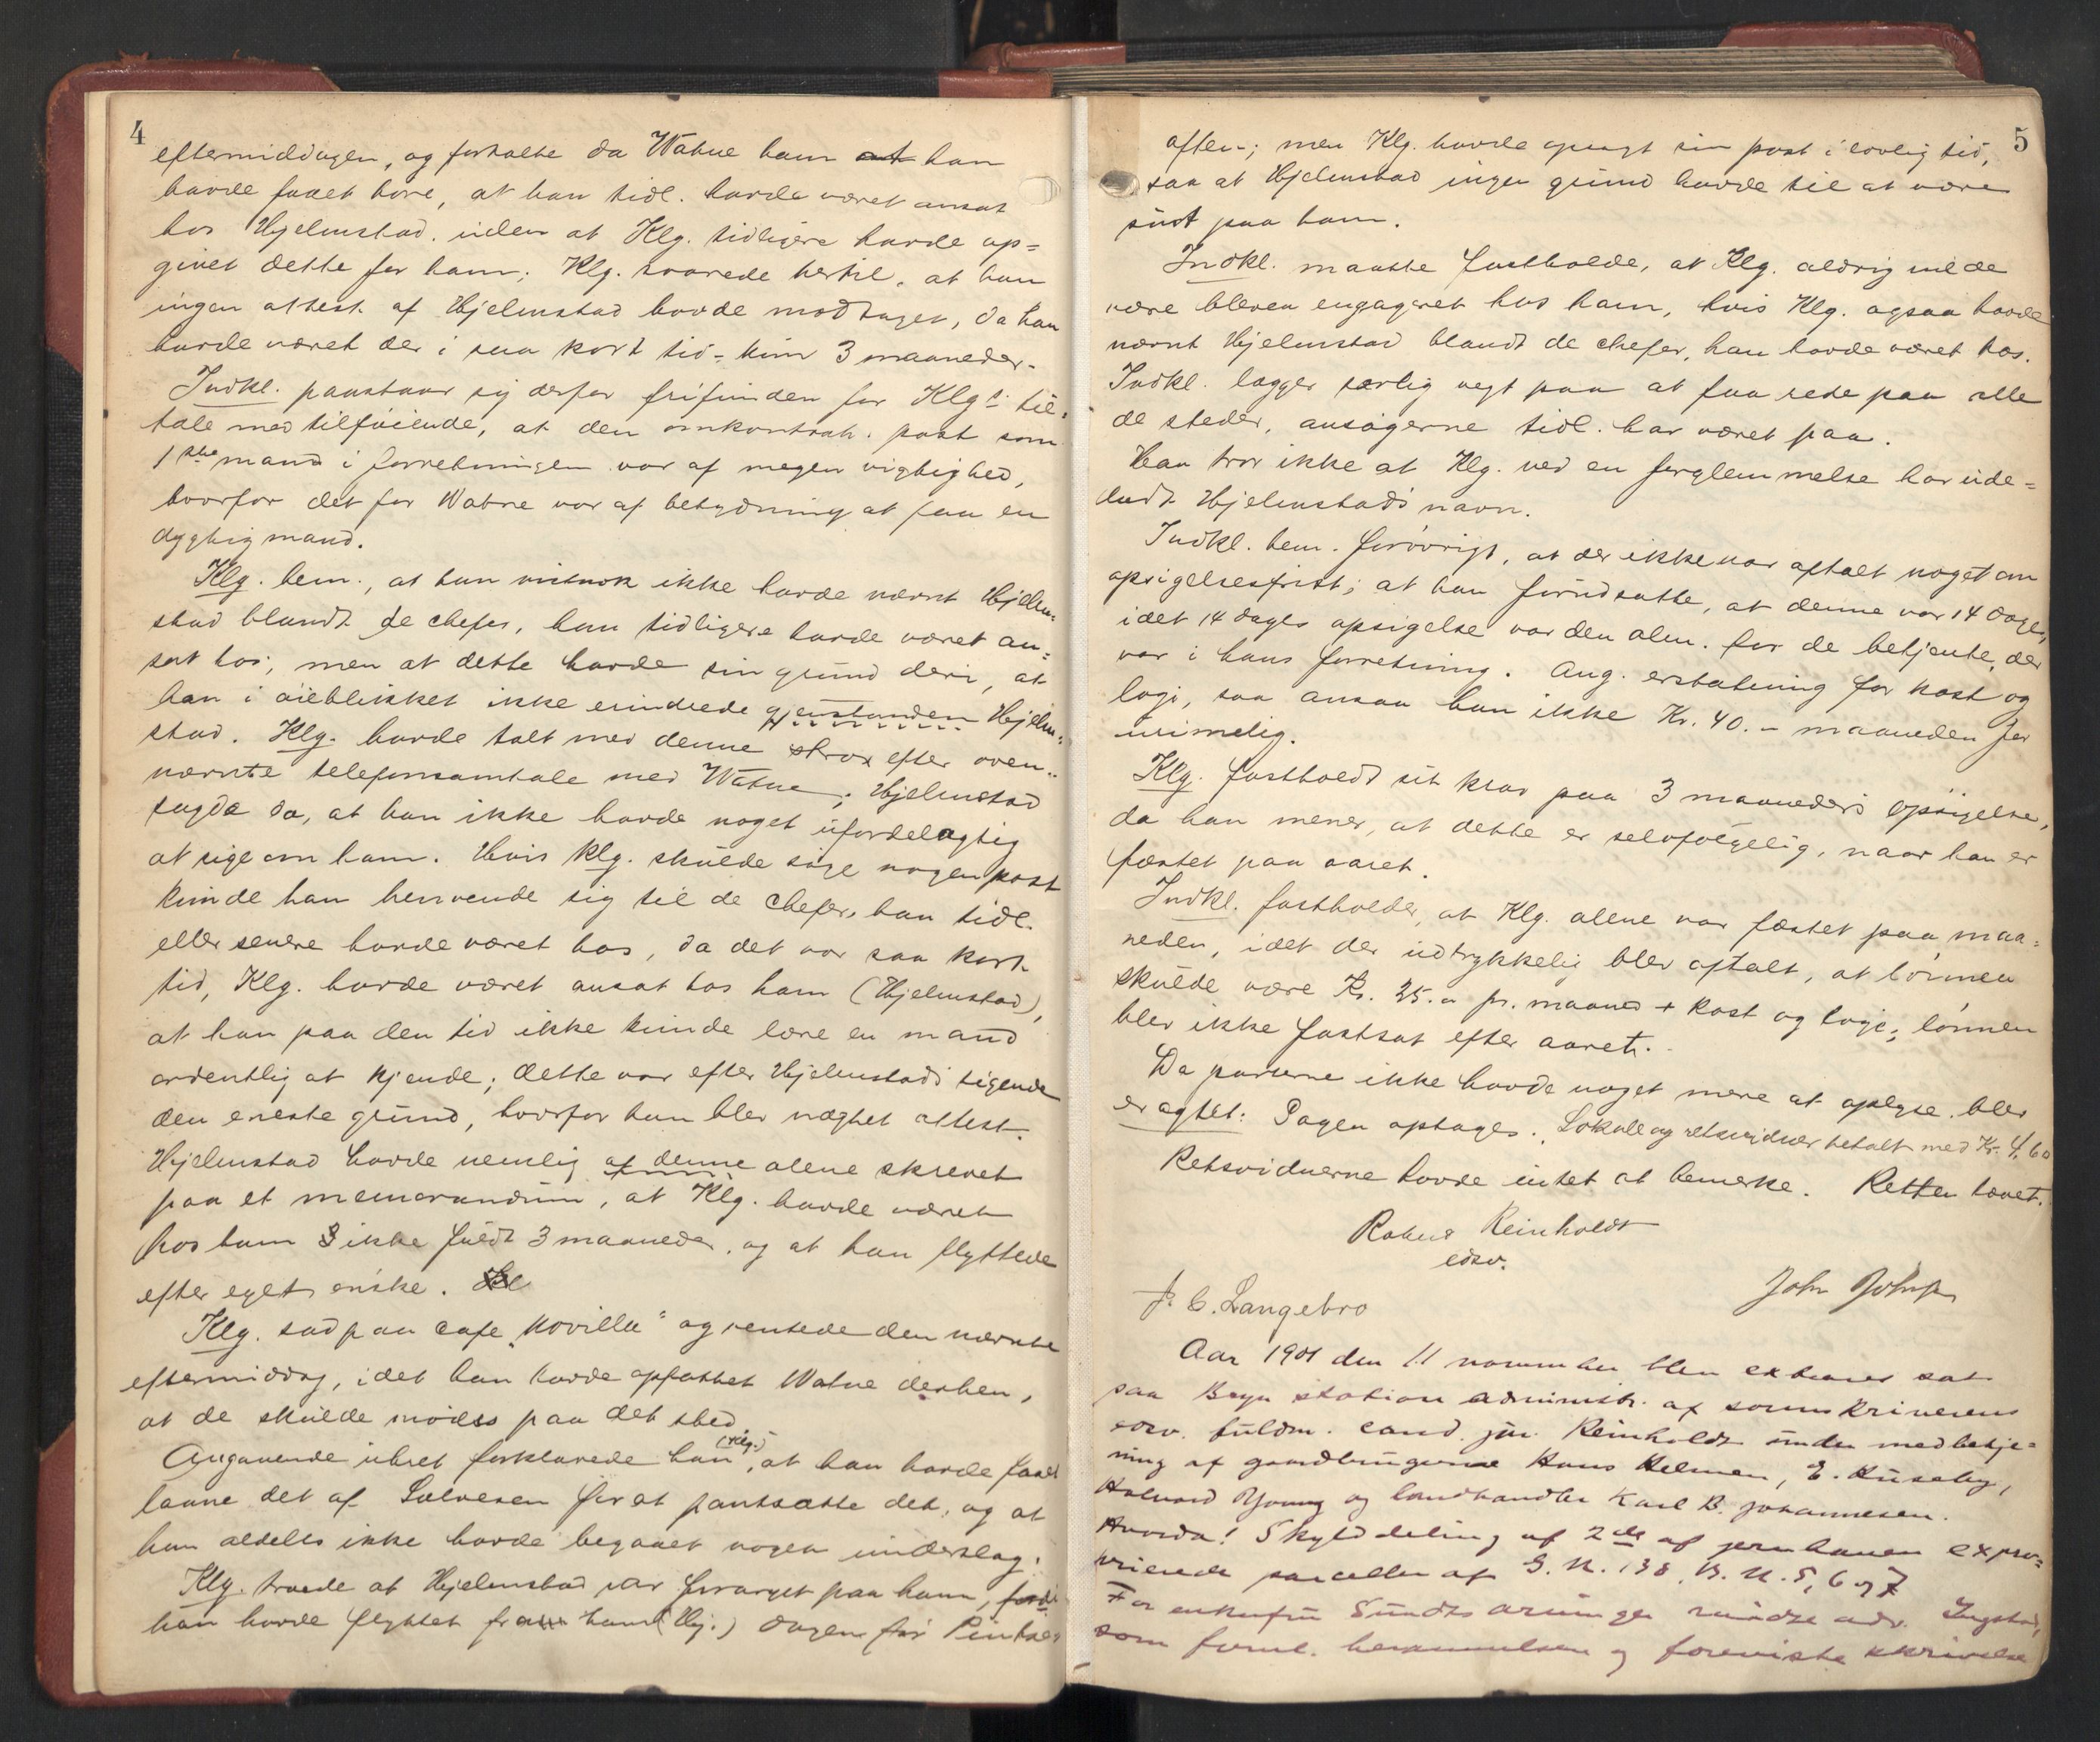 4
eftermiddagen, og forholte da Watne ham at han
havde faaet høre, at han tidl. havde været ansat
hos Hjelmstad, uden at Klg. tidligere havde op=
givet dette for ham; Klg. svarede hertil, at han
ingen attest af Hjelmstad havde modtaget, da han
havde været der i saa kort tid - kun 3 maaneder.
Indkl. paastaar sig derfor frifunden for Klgs til=
tale med tilføiende, at den omkontrah. post som
1ste mand i forretningen var af megen vigtighed,
hvorfor det for Watne var af betydning at faa en
dygtig mand.
Klg. bem., at han vistnok ikke havde nævnt Hjelm=
stad blandt de chefer, han tidligere havde været an=
sat hos; men at dette havde sin grund deri, at
han i øieblikket ikke erindrede gjenstanden Hjelm=
stad. Klg. havde talt med denne strax efter oven=
nævnte telefonsamtale med Watne; Hjelmstad
sagde da, at han ikke havde noget ufordelagtig
at sige om ham. Hvis Klg. skulde søge nogen post
kunde han henvende sig til de chefer, han tidl.
eller senere havde været hos, da det var saa kort
tid, Klg. havde været ansat hos ham (Hjelmstad),
at han paa den tid ikke kunde lære en mand
ordentlig at kjende; dette var efter Hjelmstads sigende
den eneste grund, hvorfor han blev nægtet attest.
Hjelmstad havde nemlig af denne alene skrevet
paa et memorandum, at Klg. havde været
hos ham 3 ikke fuldt 3 maaneder, og at han flyttede
efter eget ønske.
Klg. sad paa cafe "Novilla" og ventede den nævnte
eftermiddag, idet han havde opfattet Watne derhen,
at de skulde mødes paa det sted.
Angaaende uhret forklarede han (Klg.), at han havde faaet
laane det af Salvesen for at pantsætte det, og at
han aldeles ikke havde begaaet nogen underslag.
Klg. troede at Hjelmstad var forarget paa ham, fordi
han havde flyttet fra ham (Hj.) dagen før Pintse=
5
aften; men Klg. havde opsagt sin post i lovlig tid,
saa at Hjelmstad ingen grund havde til at være
sint paa ham.
Indkl. maatte fastholde, at Klg. aldrig vilde
være bleven engageret hos ham, hvis Klg. ogsaa havde
nævnt Hjelmstad blandt de chefer, han havde været hos.
Indkl. lægger særlig vegt paa at faa rede paa alle
de steder, ansøgerne tidl. har været paa.
Han tror ikke at Klg. ved en forglemmelse har ude=
ladt Hjelmstads navn.
Indkl. bem. forøvrigt, at der ikke var aftalt noget om
opsigelsesfrist; at han forudsatte, at denne var 14 dage,
idet 14 dages opsigelse var den alm. for de betjente, der
var i hans forretning. Ang. erstatning for kost og
logi, saa ansaa han ikke Kr. 40.- maaneden for
urimelig.
Klg. fastholdt sit krav paa 3 maaneders opsigelse,
da han mener, at dette er selvfølgelig, naar han er
fæstet paa aaret.
Indkl. fastholder, at Klg. alene var fæstet paa maa=
neden, idet der udtrykkelig blev aftalt, at lønnen
skulde være Kr. 35.- pr. maaned + kost og logi; lønnen
blev ikke fastsat efter aaret.
Da parterne ikke havde noget mere at oplyse, blev
eragtet: Sagen optages. Lokale og retsvidner betalt med Kr. 4,60
Retsvidnerne havde intet at bemerke. Retten hævet.
Reinholdt
edsv.
J. C. Langebro
John Johns
Aar 1901 den 11 november blev extraret sat
paa Bryn station administr. af sorenskriverens
edsv. fuldm. cand. jur. Reinholdt under medbetje=
ning af gaardbrugerne Hans Helmen, E. Huseby,
Halvord Young og landhandler Karl B. Johannesen.
Hvorda! Skylddeling af 2de af jernbanen expro=
prierede parceller af G. N. 138, B. N. 5, 6 og 7
For enkefru Sundts arvinger mødte adv. Ingstad,
som freml. berammelsen og foreviste skrivelse